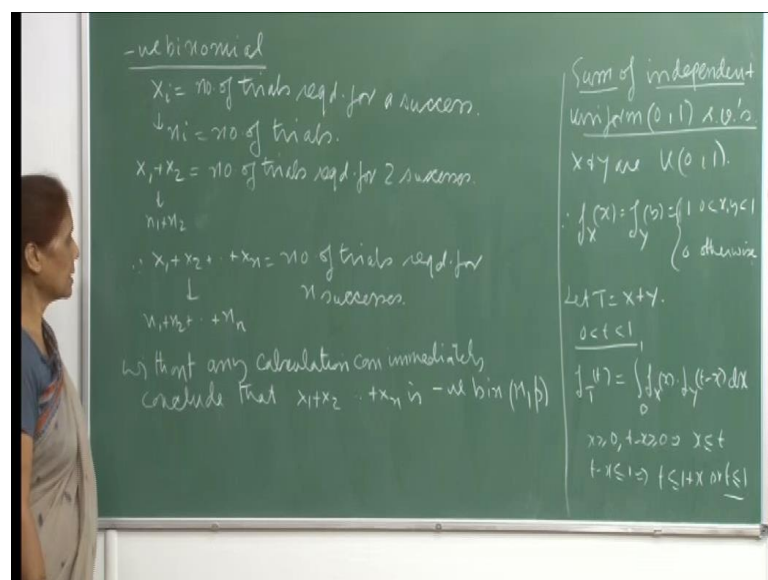 -ve binomial
Xi = no of trials reqd. for a success.
↓ ni = no of trials.
X1+X2 = no of trials reqd for 2 successes.
↓
n1+n2
∴ X1+X2+ ‥ +Xn = no of trials reqd. for
↓ n successes.
n1+n2+ ‥ +nn
Without any calculation can immediately
conclude that X1+X2 ‥ +Xn is -ve bin (n, p)
Sum of independent
uniform (0,1) r.v.'s.
X & Y are U(0,1).
∴ fX(x) = fY(y) = { 1 0<x,y<1
0 otherwise
Let T = X+Y.
0<t<1
fT(t) = ∫0^1 fX(x). fY(t-x) dx
x≥0, t-x≥0 ⇒ x≤t
t-x≤1 ⇒ t≤1+x or t≤1